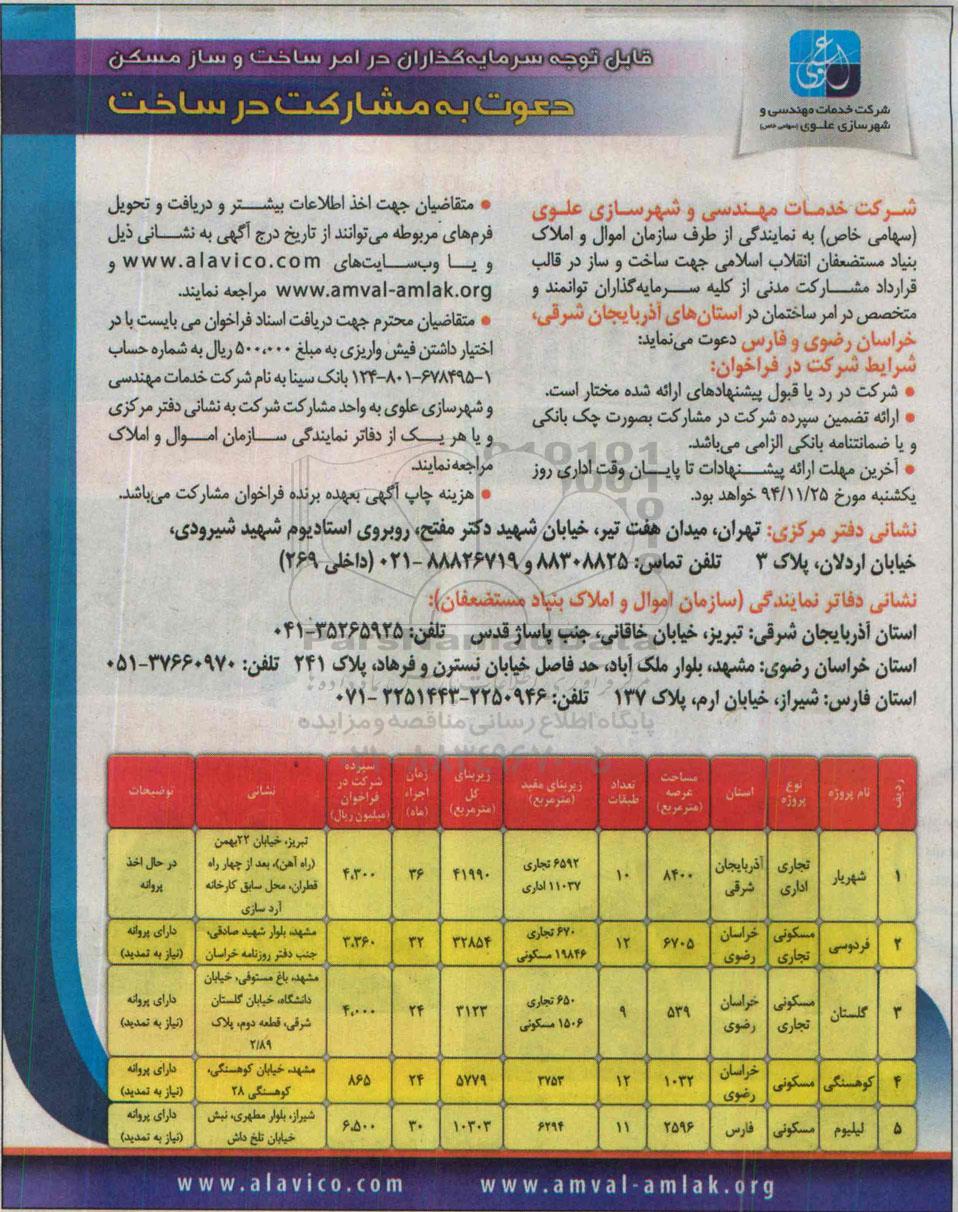 قابل توجه سرمایه‌گذاران در امر ساخت و ساز مسکن
دعوت به مشارکت در ساخت
شرکت خدمات مهندسی و
شهرسازی علـوی (سهامی خاص)
شرکت خدمات مهندسی و شهرسازی علوی
(سهامی خاص) به نمایندگی از طرف سازمان اموال و املاک
بنیاد مستضعفان انقلاب اسلامی جهت ساخت و ساز در قالب
قرارداد مشارکت مدنی از کلیه سرمایه‌گذاران توانمند و
متخصص در امر ساختمان در استان‌های آذربایجان شرقی،
خراسان رضوی و فارس دعوت می‌نماید:
شرایط شرکت در فراخوان:
● شرکت در رد یا قبول پیشنهادهای ارائه شده مختار است.
● ارائه تضمین سپرده شرکت در مشارکت بصورت چک بانکی
و یا ضمانتنامه بانکی الزامی می‌باشد.
● آخرین مهلت ارائه پیشنهادات تا پایان وقت اداری روز
یکشنبه مورخ ۹۴/۱۱/۲۵ خواهد بود.
● متقاضیان جهت اخذ اطلاعات بیشتر و دریافت و تحویل
فرم‌های مربوطه می‌توانند از تاریخ درج آگهی به نشانی ذیل
و یا وب‌سایت‌های www.alavico.com و
www.amval-amlak.org مراجعه نمایند.
● متقاضیان محترم جهت دریافت اسناد فراخوان می بایست با در
اختیار داشتن فیش واریزی به مبلغ ۵۰۰،۰۰۰ ریال به شماره حساب
۱۲۴-۸۰۱-۶۷۸۴۹۵-۱ بانک سینا به نام شرکت خدمات مهندسی
و شهرسازی علوی به واحد مشارکت شرکت به نشانی دفتر مرکزی
و یا هر یک از دفاتر نمایندگی سازمان اموال و املاک
مراجعه نمایند.
● هزینه چاپ آگهی بعهده برنده فراخوان مشارکت می‌باشد.
نشانی دفتر مرکزی: تهران، میدان هفت تیر، خیابان شهید دکتر مفتح، روبروی استادیوم شهید شیرودی،
خیابان اردلان، پلاک ۳ تلفن تماس: ۸۸۳۰۸۸۲۵ و ۸۸۸۲۶۷۱۹ -۰۲۱ (داخلی ۲۶۹)
نشانی دفاتر نمایندگی (سازمان اموال و املاک بنیاد مستضعفان):
استان آذربایجان شرقی: تبریز، خیابان خاقانی، جنب پاساژ قدس تلفن: ۳۵۲۶۵۹۲۵-۰۴۱
استان خراسان رضوی: مشهد، بلوار ملک آباد، حد فاصل خیابان نسترن و فرهاد، پلاک ۲۴۱ تلفن: ۳۷۶۶۰۹۷۰-۰۵۱
استان فارس: شیراز، خیابان ارم، پلاک ۱۳۷ تلفن: ۲۲۵۰۹۴۶-۲۲۵۱۴۴۳ -۰۷۱
پایگاه اطلاع رسانی مناقصه و مزایده
ردیف نام پروژه نوع پروژه استان مساحت عرصه (مترمربع) تعداد طبقات زیربنای مفید (مترمربع) زیربنای کل (مترمربع) زمان اجراء (ماه) سپرده شرکت در فراخوان (میلیون ریال) نشانی توضیحات
۱ شهریار تجاری اداری آذربایجان شرقی ۸۴۰۰ ۱۰ ۶۵۹۲ تجاری ۱۱۰۳۷ اداری ۴۱۹۹۰ ۳۶ ۴،۳۰۰ تبریز، خیابان ۲۲بهمن (راه آهن)، بعد از چهار راه قطران، محل سابق کارخانه آرد سازی در حال اخذ پروانه
۲ فردوسی مسکونی تجاری خراسان رضوی ۶۷۰۵ ۱۲ ۶۷۰ تجاری ۱۹۸۴۶ مسکونی ۳۲۸۵۴ ۳۲ ۳،۳۶۰ مشهد، بلوار شهید صادقی، جنب دفتر روزنامه خراسان دارای پروانه (نیاز به تمدید)
۳ گلستان مسکونی تجاری خراسان رضوی ۵۳۹ ۹ ۶۵۰ تجاری ۱۵۰۶ مسکونی ۳۱۲۳ ۲۴ ۴،۰۰۰ مشهد، باغ مستوفی، خیابان دانشگاه، خیابان گلستان شرقی، قطعه دوم، پلاک ۲/۸۹ دارای پروانه (نیاز به تمدید)
۴ کوهسنگی مسکونی خراسان رضوی ۱۰۳۲ ۱۲ ۳۷۵۳ ۵۷۷۹ ۲۴ ۸۶۵ مشهد، خیابان کوهسنگی، کوهسنگی ۲۸ دارای پروانه (نیاز به تمدید)
۵ لیلیوم مسکونی فارس ۲۵۹۶ ۱۱ ۶۲۹۴ ۱۰۳۰۳ ۳۰ ۶،۵۰۰ شیراز، بلوار مطهری، نبش خیابان تلخ داش دارای پروانه (نیاز به تمدید)
www.alavico.com www.amval-amlak.org